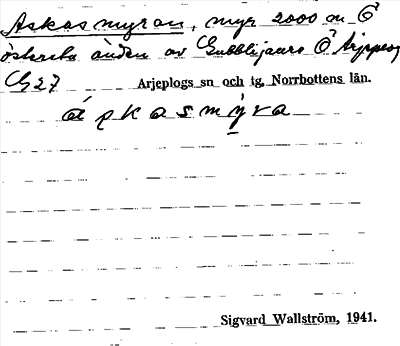 Askasmyran, myr 2000 m Ö
östersta änden av Gubblijaure Ö Arjeplog
G 27
Arjeplogs sn och tg, Norrbottens län.
á p k a s m y r a
Sigvard Wallström, 1941.